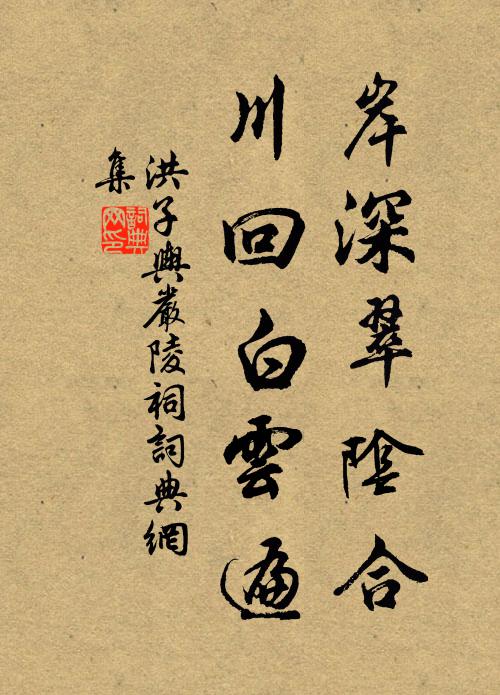 岸深翠陰合
川回白雲遍
洪子輿嚴陵祠詞典網
集
詞典網印